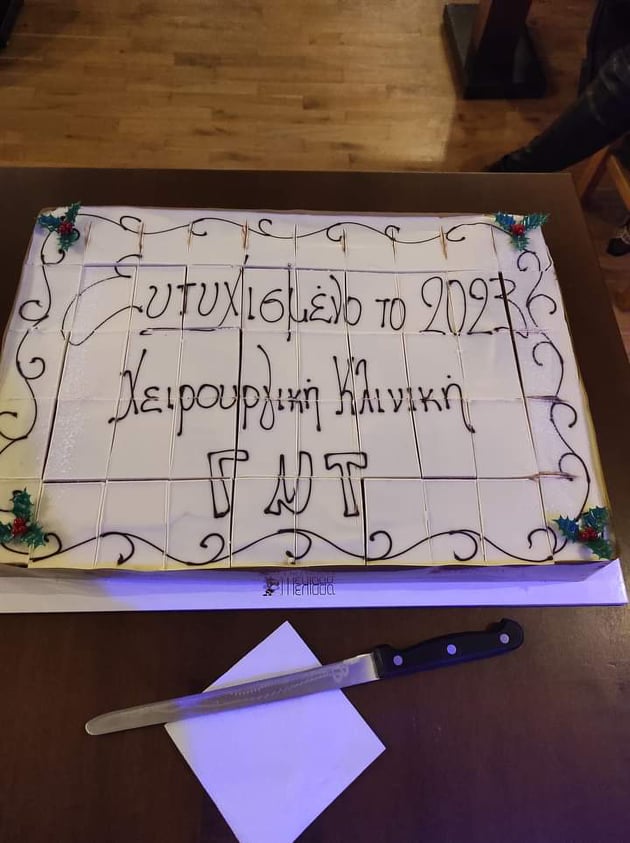 Ευτυχισμένο το 2023
Χειρουργική Κλινική
ΓΝΤ
Μέλισσα